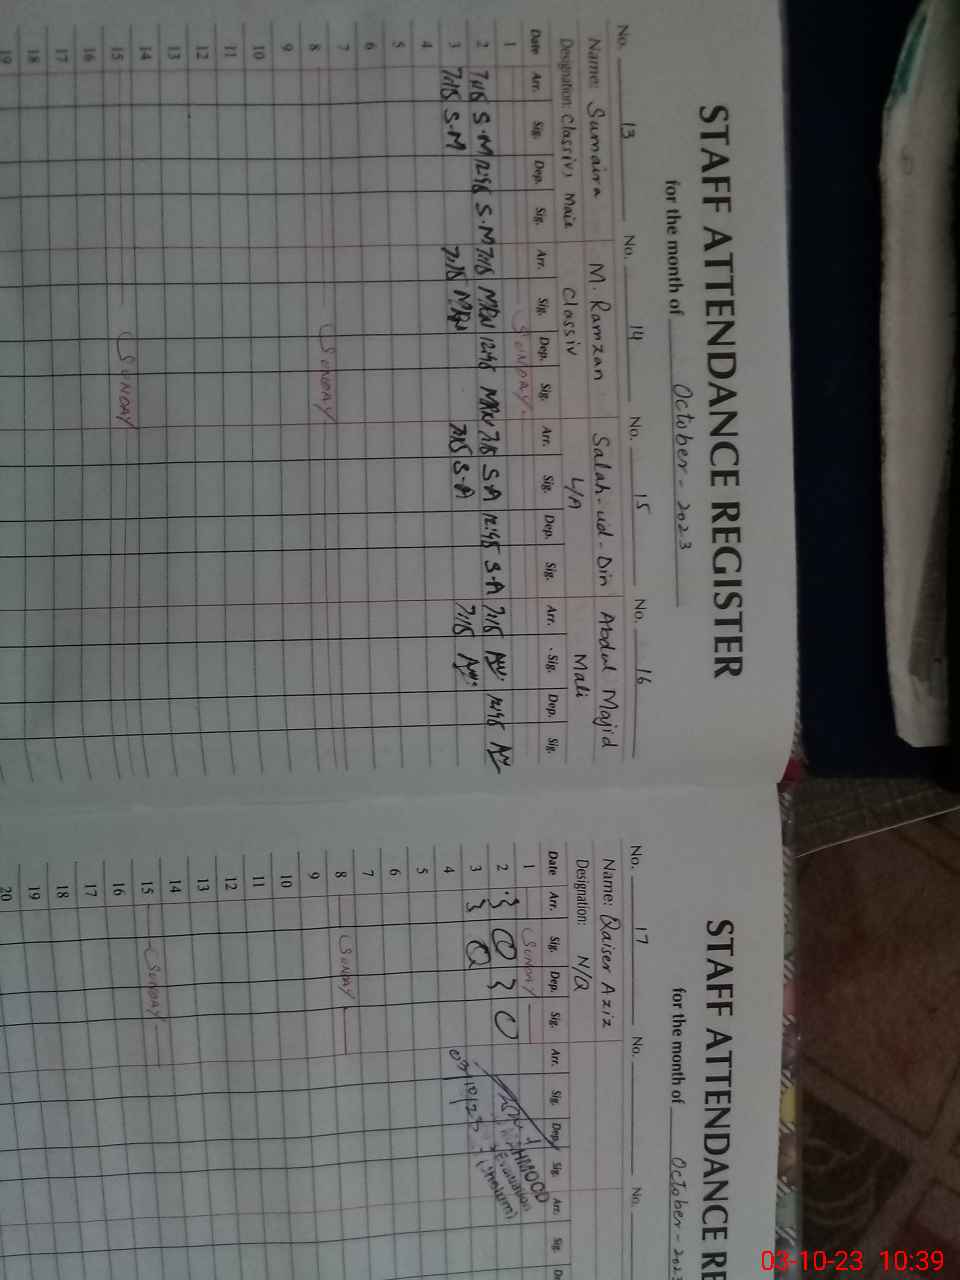 STAFF ATTENDANCE REGISTER
for the month of October - 2023
No. 13 No. 14 No. 15 No. 16
Name: Sumaira M. Ramzan Salah-ud-Din Abdul Majid
Designation: Classiv, Maie Classiv L/A Mali
Date Arr. Sig. Dep. Sig. Arr. Sig. Dep. Sig. Arr. Sig. Dep. Sig. Arr. Sig. Dep. Sig.
1 SUNDAY
2 7:15 S.M 12:45 S.M 7:15 MRN 12:45 MRN 7:15 S.A 12:45 S.A 7:15 12:45
3 7:15 S.M 7:15 MRN 7:15 S.A 7:15
4
5
6
7
8 SUNDAY
9
10
11
12
13
14
15 SUNDAY
16
17
18
19
STAFF ATTENDANCE RE
for the month of October - 2023
No. 17 No. No.
Name: Qaiser Aziz
Designation: N/Q
Date Arr. Sig. Dep. Sig. Arr. Sig. Dep. Sig. Arr. Sig. De
1 SUNDAY
2
3
4
5
6
7
8 SUNDAY
9
10
11
12
13
14
15 SUNDAY
16
17
18
19
20
03/10/23
03-10-23 10:39